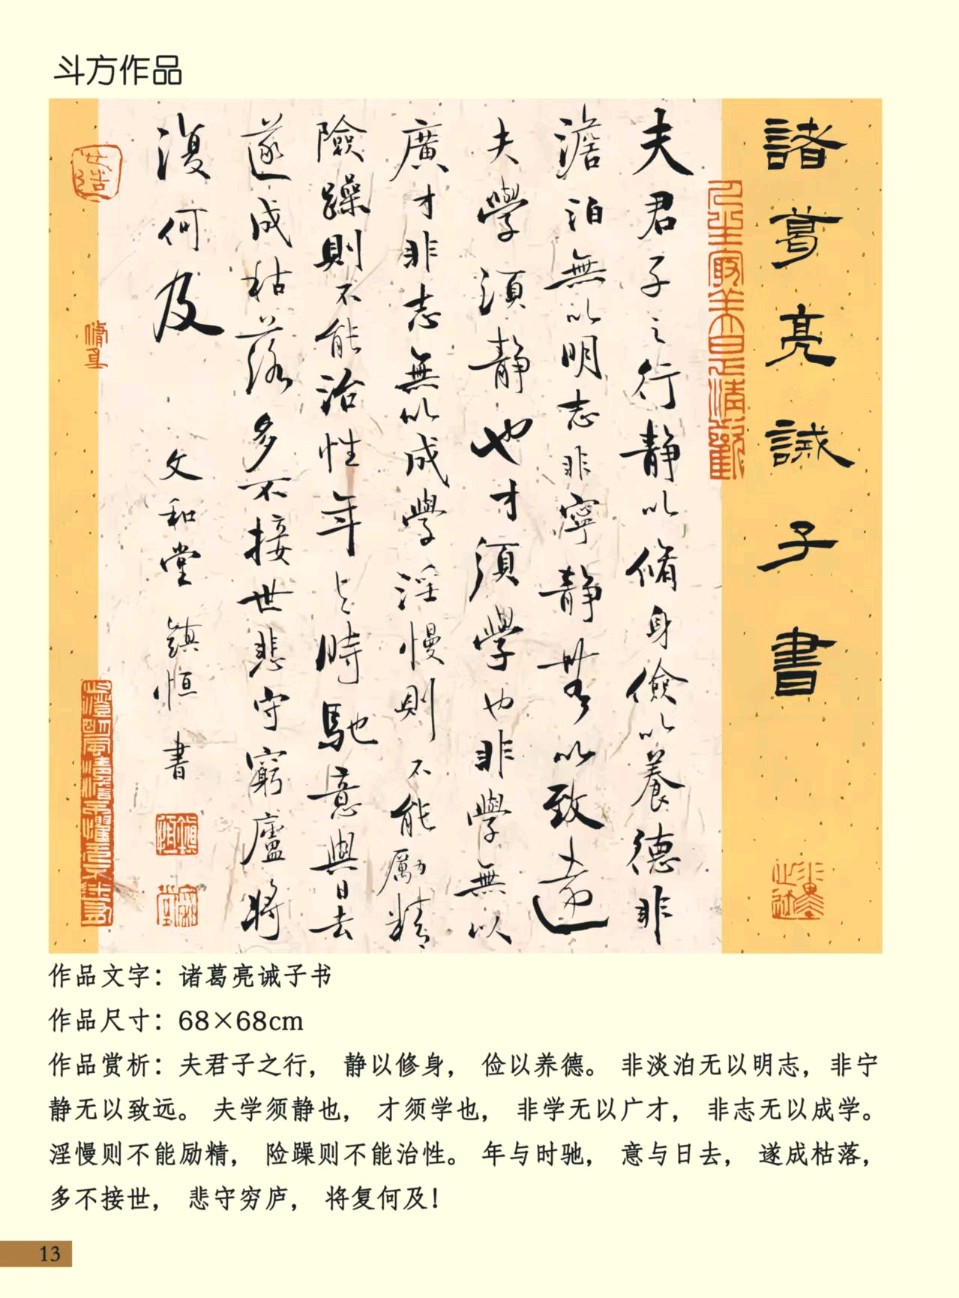 斗方作品
諸葛亮誡子書
夫君子之行静以脩身儉以養德非
澹泊無以明志非寧静無以致遠
夫學須静也才須學也非學無以
廣才非志無以成學淫慢則不能勵精
險躁則不能治性年与時馳意與日去
遂成枯落多不接世悲守窮廬將
復何及
文和堂 鎮恒 書
鎮恒
作品文字：诸葛亮诫子书
作品尺寸：68×68cm
作品赏析：夫君子之行， 静以修身， 俭以养德。 非淡泊无以明志，非宁
静无以致远。 夫学须静也， 才须学也， 非学无以广才， 非志无以成学。
淫慢则不能励精， 险躁则不能治性。 年与时驰， 意与日去， 遂成枯落，
多不接世， 悲守穷庐， 将复何及！
13